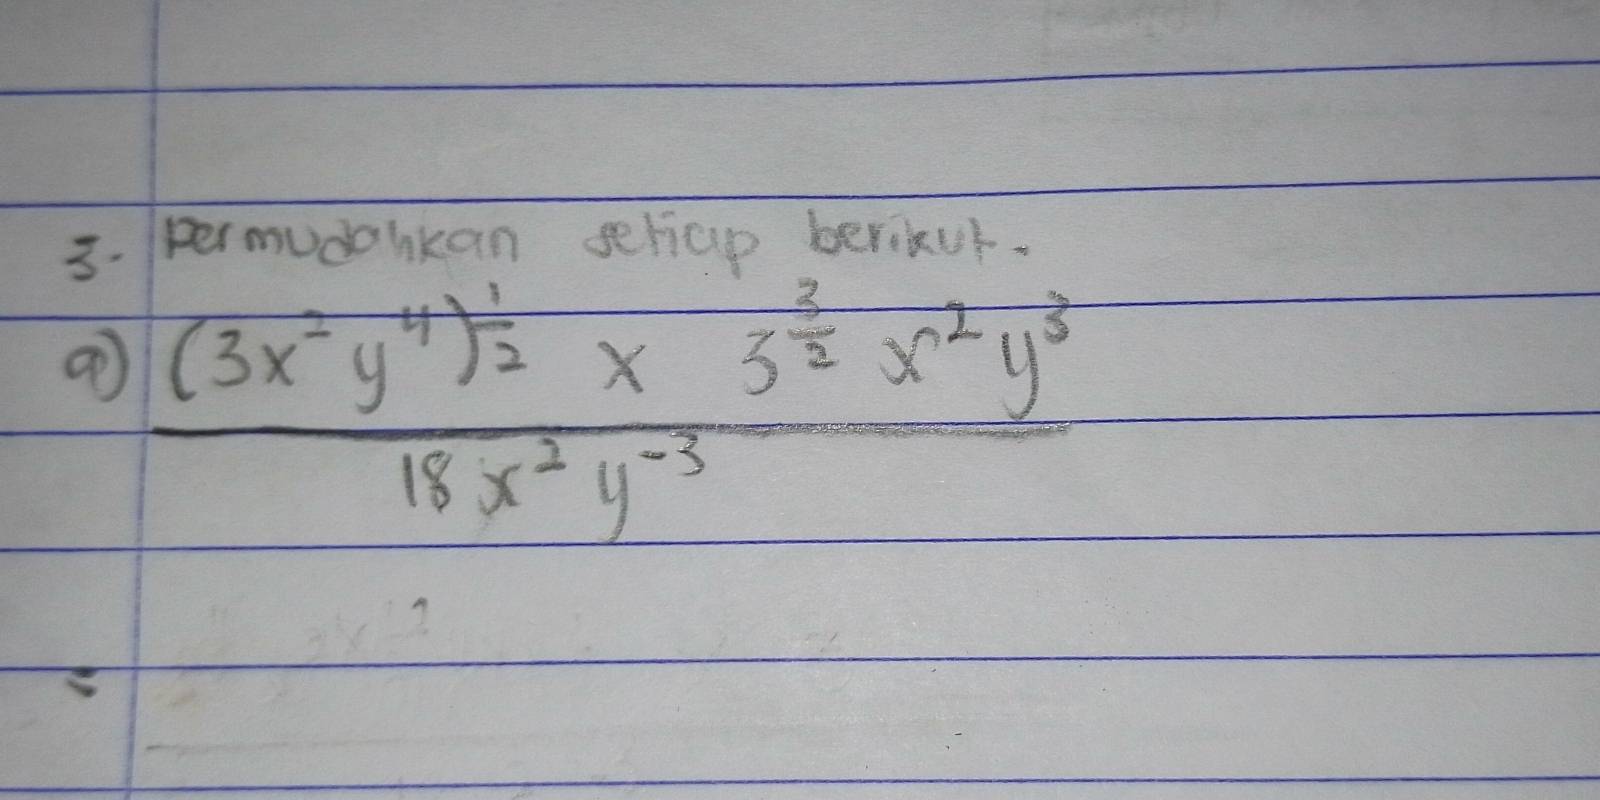 3. Permudahkan setiap berikut.
a) (3x² y⁴)^(1/2) x 3^(3/2) x² y³
18 x² y⁻³
=